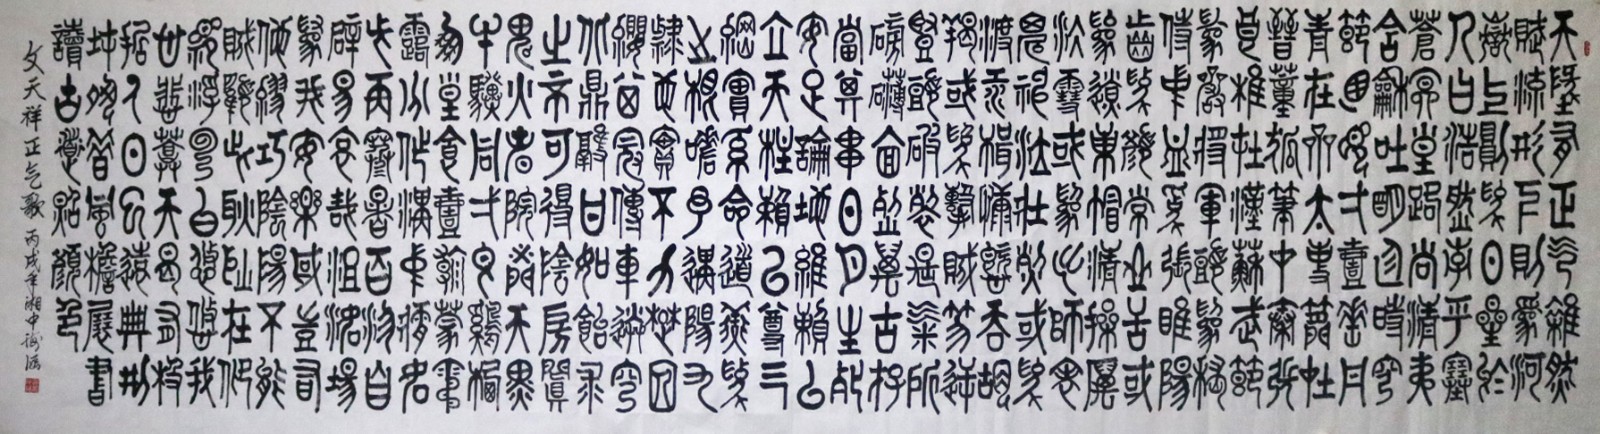 天地有正气雜然
賦流形下則為河
嶽上則為日星於
人曰浩然沛乎塞
蒼冥皇路尚清夷
含龢吐明廷時窮
節乃見一一垂丹
青在齊太史簡在
晉董狐筆在秦張
良椎在漢蘇武節
為嚴將軍頭為嵇
侍中血為張睢陽
齒為顏常山舌或
為遼東帽清操厲
冰雪或為出師表
鬼神泣壯烈或為
渡江楫慷慨吞胡
羯或為擊賊笏逆
豎頭破裂是气所
磅礴凜烈萬古存
當其貫日月生死
安足論地維賴以
立天柱賴以尊三
綱實系命道義為
之根嗟予遘陽九
隸也實不力楚囚
纓其冠傳車送窮
北鼎鑊甘如飴求
之不可得陰房闃
鬼火春院閟天黑
牛驥同一皂雞棲
鳳皇食一朝蒙霧
露分作溝中瘠如
此再寒暑百沴自
辟易哀哉沮洳場
為我安樂國豈有
他繆巧陰陽不能
賊顧此耿耿在仰
視浮雲白悠悠我
心悲蒼天曷有極
哲人日已遠典刑
在夙昔風檐展書
讀古道照顏色
文天祥正气歌 丙戌年湘中